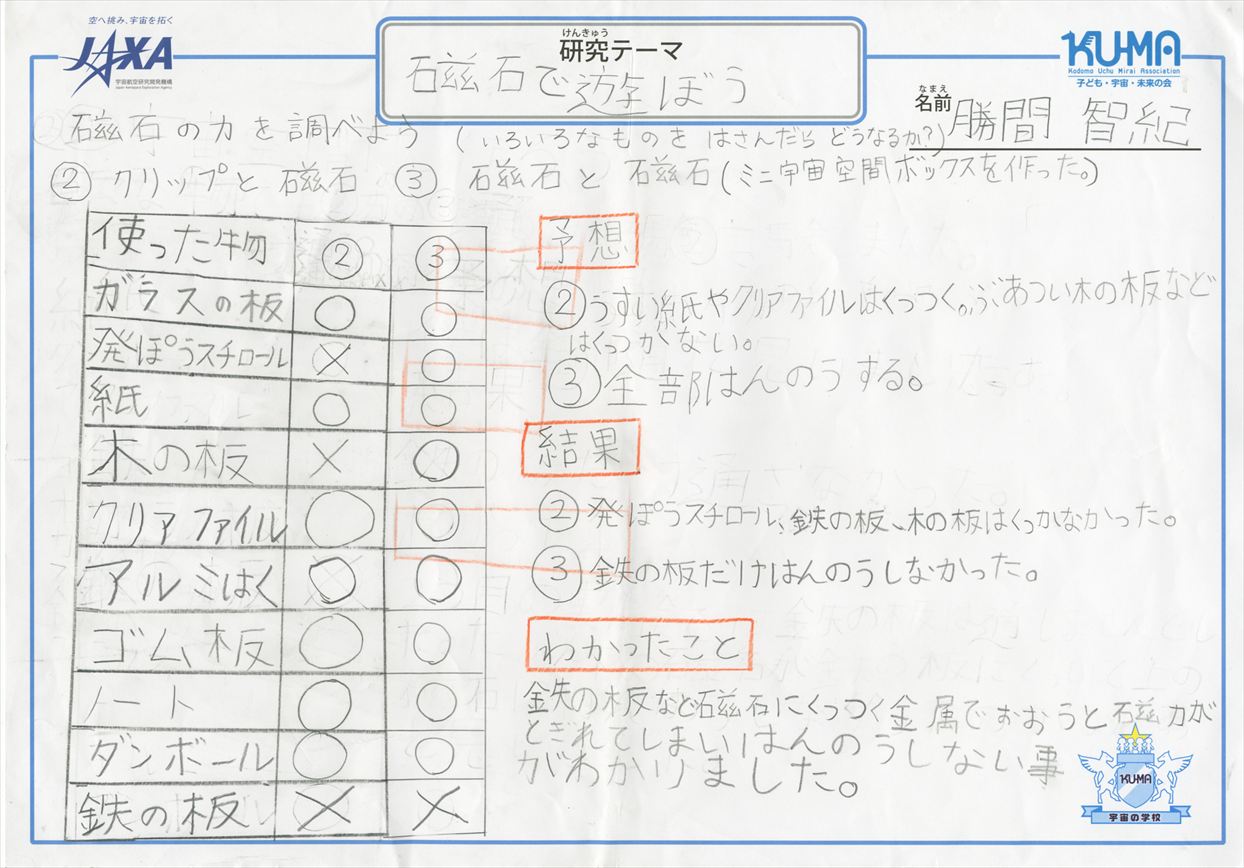 空へ挑み、宇宙を拓く
JAXA
宇宙航空研究開発機構
Japan Aerospace Exploration Agency
けんきゅう
研究テーマ
石磁石で遊ぼう
KU-MA
Kodomo Uchu Mirai Association
子ども・宇宙・未来の会
なまえ
名前 勝間 智紀
② 磁石の力を調べよう (いろいろなものをはさんだらどうなるか?)
② クリップと磁石 ③ 磁石と磁石(ミニ宇宙空間ボックスを作った。)
使った物 ② ③
ガラスの板 ○ ○
発ぽうスチロール × ○
紙 ○ ○
木の板 × ○
クリアファイル ○ ○
アルミはく ○ ○
ゴム板 ○ ○
ノート ○ ○
ダンボール ○ ○
鉄の板 × ×
予想
②うすい紙やクリアファイルはくっつく。あつい木の板など
はくっつかない。
③全部はんのうする。
結果
②発ぽうスチロール、鉄の板、木の板はくっかなかった。
③鉄の板だけはんのうしなかった。
わかったこと
鉄の板など磁石にくっつく金属でおおうと磁力が
とぎれてしまいはんのうしない事
がわかりました。
KUMA
宇宙の学校